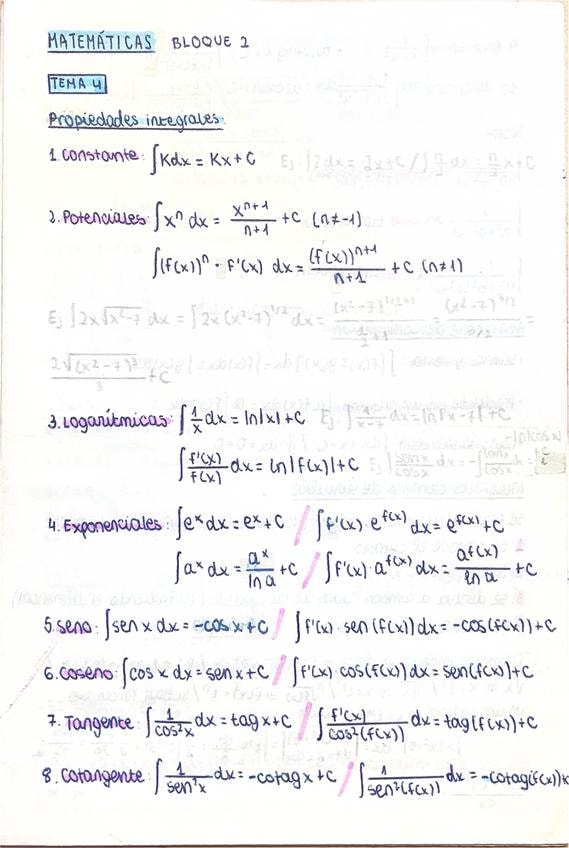 MATEMÁTICAS BLOQUE 2
TEMA 4
Propiedades integrales:
1. Constante: ∫Kdx = Kx + C Ej: ∫2dx = 2x + C / ∫π/2 dx = π/2 x + C
2. Potenciales: ∫xⁿ dx = xⁿ⁺¹/n+1 + C (n≠-1)
∫(f(x))ⁿ · f'(x) dx = (f(x))ⁿ⁺¹/n+1 + C (n≠1)
Ej ∫2x√x²-7 dx = ∫2x(x²-7)^1/2 dx = (x²-7)^1/2+1 / 1/2+1 = (x²-7)^3/2 / 3/2 =
2√(x²-7)³ / 3 + C
3. Logarítmicas: ∫1/x dx = ln|x| + C Ej ∫1/x-7 dx = ln|x-7| + C
∫f'(x)/f(x) dx = ln|f(x)| + C Ej ∫sen x/cos x dx = -∫ dx = -ln|cos x| + C
4. Exponenciales: ∫eˣ dx = eˣ + C / ∫f'(x) · e^f(x) dx = e^f(x) + C
∫aˣ dx = aˣ/ln a + C / ∫f'(x) · a^f(x) dx = af(x)/ln a + C
5. Seno: ∫sen x dx = -cos x + C / ∫f'(x) · sen(f(x)) dx = -cos(f(x)) + C
6. Coseno: ∫cos x dx = sen x + C / ∫f'(x) · cos(f(x)) dx = sen(f(x)) + C
7. Tangente: ∫1/cos²x dx = tag x + C / ∫f'(x)/cos²(f(x)) dx = tag(f(x)) + C
8. Cotangente: ∫1/sen²x dx = -cotag x + C / ∫1/sen²(f(x)) dx = -cotag(f(x))+